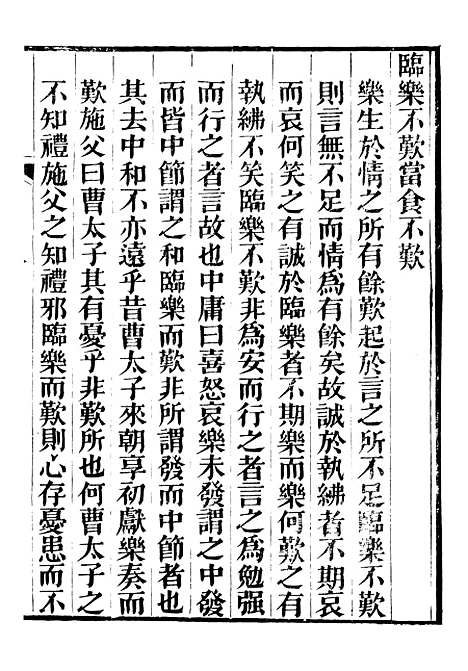 臨樂不歎當食不歎
樂生於情之所有餘歎起於言之所不足臨樂不歎
則言無不足而情爲有餘矣故誠於執紼者不期哀
而哀何笑之有誠於臨樂者不期樂而樂何歎之有
執紼不笑臨樂不歎非爲安而行之者言之爲勉强
而行之者言故也中庸曰喜怒哀樂未發謂之中發
而皆中節謂之和臨樂而歎非所謂發而中節者也
其去中和不亦遠乎昔曹太子來朝享初獻樂奏而
歎施父曰曹太子其有憂乎非歎所也何曹太子之
不知禮施父之知禮邪臨樂而歎則心存憂患而不